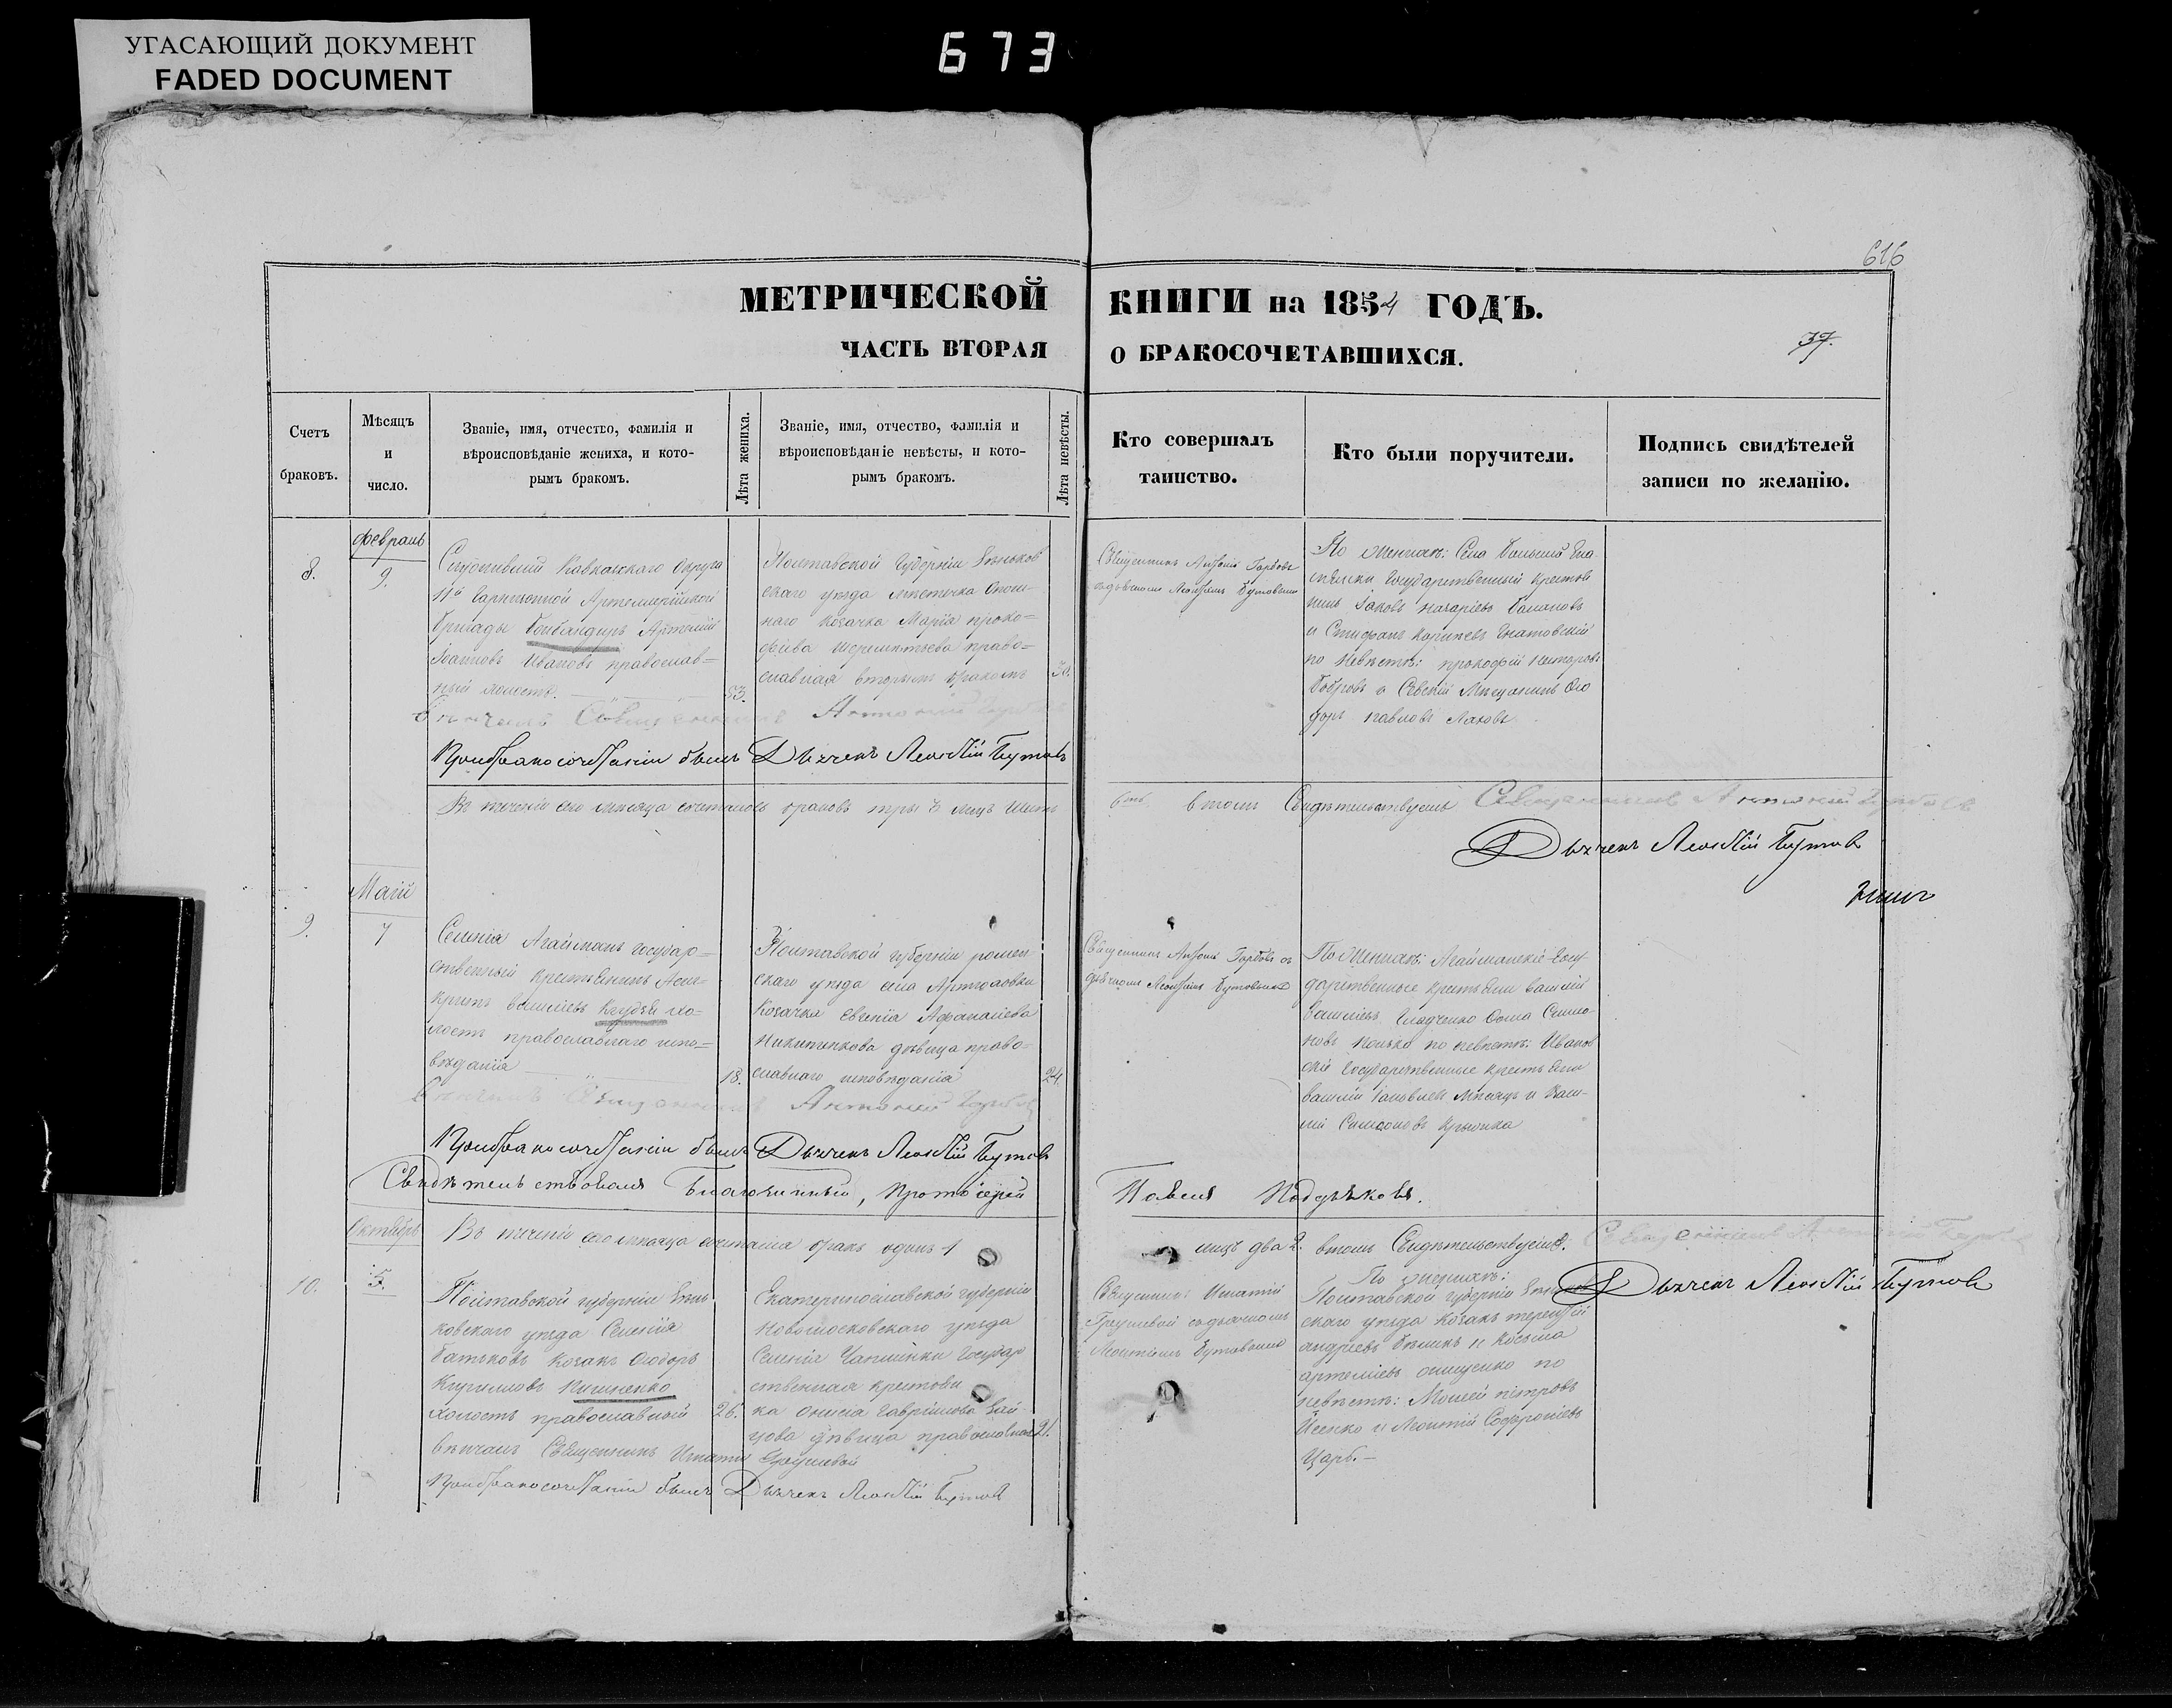 УГАСАЮЩИЙ ДОКУМЕНТ
FADED DOCUMENT
673
616
МЕТРИЧЕСКОЙ КНИГИ на 1854 ГОДЪ.
ЧАСТЬ ВТОРАЯ О БРАКОСОЧЕТАВШИХСЯ.
37.
Счетъ
браковъ.
Мѣсяцъ
и
число.
Званіе, имя, отчество, фамилія и
вѣроисповѣданіе жениха, и кото-
рымъ бракомъ.
Лѣта жениха.
Званіе, имя, отчество, фамилія и
вѣроисповѣданіе невѣсты, и кото-
рымъ бракомъ.
Лѣта невѣсты.
Кто совершалъ
таинство.
Кто были поручители.
Подпись свидѣтелей
записи по желанію.
8.
февраль
9.
Кавказскаго Округа
Гарнизонной Артиллерійской
бригады бонбандиръ Артемій
Іоанновъ Ивановъ православ=
ный холостъ.
53.
Полтавской Губерніи Зѣньков
скаго уѣзда мѣстечка Опош-
наго козачка Марія проко=
фіева Шереметьева право=
славная вторымъ бракомъ
30.
Священникъ Антоній Горбовъ
съ дьячкомъ Леонтіемъ Бутовымъ
По женихѣ: Села
Государственный крестья
нинъ Іаковъ назаріевъ
и Стефанъ
по невѣстѣ: прокофій Несторовъ
Бобровъ и Севскій Мѣщанинъ Ѳео
доръ павловъ Лаховъ.
вѣнчалъ Священникъ Антоній Горбовъ
При бракосочетаніи былъ Дьячекъ Леонтій Бутовъ
Въ теченіи сего мѣсяца сочеталось браковъ три 3 лицъ шесть
6ть. въ томъ Свидѣтельствуемъ Священникъ Антоній Горбовъ
Дьячекъ Леонтій Бутовъ
Маій
9.
7
Селенія Агайманъ государ=
ственный крестьянинъ
васильевъ хо=
лостъ православнаго испо=
вѣданія
18.
Полтавской губерніи ромен
скаго уѣзда села Артюховки
Козачка Евгенія Афанасіева
Никитенкова дѣвица право=
славнаго исповѣданія
24.
Священникъ Антоній Горбовъ съ
дьячкомъ Леонтіемъ Бутовымъ
По женихѣ: Агайманскіе Госу
дарственные крестьяне василій
васильевъ Гладченко Ѳома Семіо
новъ по невѣстѣ: Иванов
скіе Государственные крестьяне
василій Іаковлевъ Мѣсяцъ и Васи-
лій Симеоновъ
вѣнчалъ Священникъ Антоній Горбовъ
При бракосочетаніи былъ Дьячекъ Леонтій Бутовъ
Свидѣтельствовалъ Благочинный, Протоіерей Павелъ
Октябрь
Въ теченіи сего мѣсяца сочетался бракъ одинъ 1
лицъ два 2. въ томъ Свидѣтельствуемъ. Священникъ Антоній Горбовъ
Дьячекъ Леонтій Бутовъ
10.
5.
Полтавской губерніи Зѣнь
ковскаго уѣзда Селенія
Батьковъ козакъ Ѳеодоръ
Кирилловъ
холостъ православный
26.
Екатеринославской губерніи
Новомосковскаго уѣзда
Селенія Чаплинки Государ
ственная крестьян
ка Гавріилова Зай
цова дѣвица православная
21.
Священникъ Игнатій
Грушевой съ дьячкомъ
Леонтіемъ Бутовымъ
По женихѣ:
Полтавской губерніи Зѣньков
скаго уѣзда козакъ терентій
андреевъ и Косьма
артеміевъ онищенко по
невѣстѣ: Моисей петровъ
и Леонтій Софроніевъ
Царь.
вѣнчалъ Священникъ Игнатій Грушевой
При бракосочетаніи былъ Дьячекъ Леонтій Бутовъ